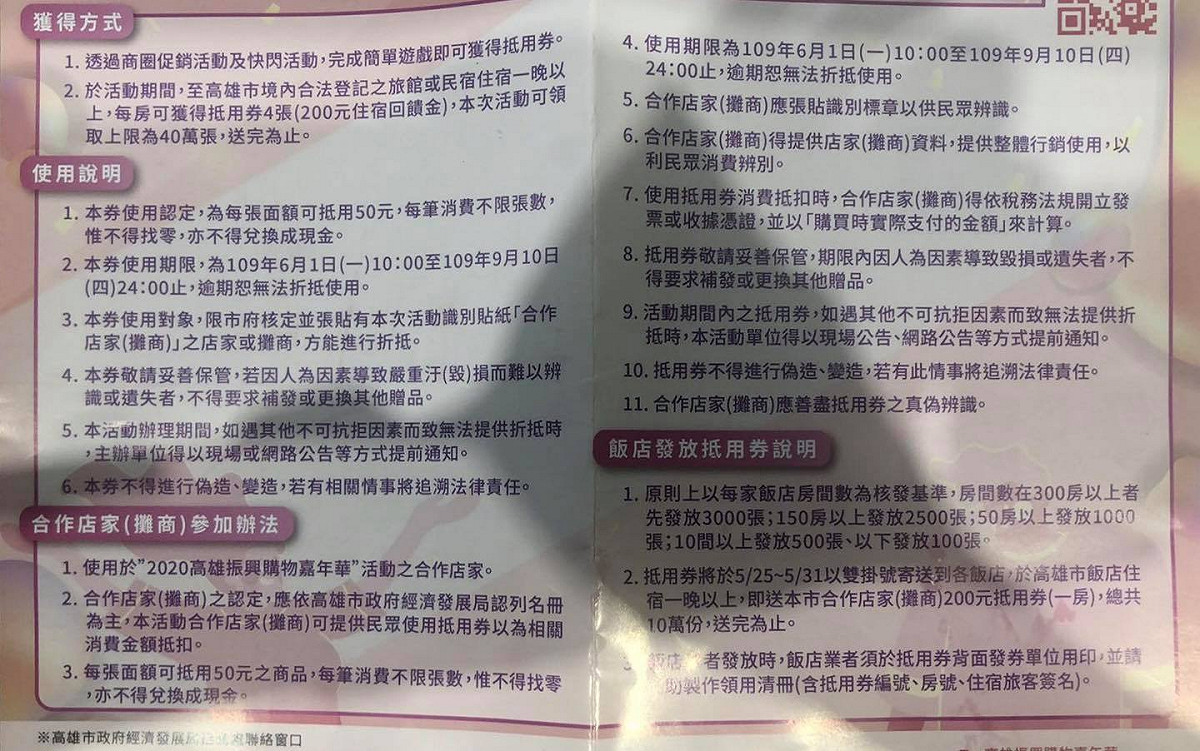 獲得方式
1. 透過商圈促銷活動及快閃活動,完成簡單遊戲即可獲得抵用券。
2. 於活動期間,至高雄市境內合法登記之旅館或民宿住宿一晚以
上,每房可獲得抵用券4張(200元住宿回饋金),本次活動可領
取上限為40萬張,送完為止。
使用說明
1. 本券使用認定,為每張面額可抵用50元,每筆消費不限張數,
惟不得找零,亦不得兌換成現金。
2. 本券使用期限,為109年6月1日(一)10:00至109年9月10日
(四)24:00止,逾期恕無法折抵使用。
3. 本券使用對象,限市府核定並張貼有本次活動識別貼紙「合作
店家(攤商)」之店家或攤商,方能進行折抵。
4. 本券敬請妥善保管,若因人為因素導致嚴重汙(毀)損而難以辨
識或遺失者,不得要求補發或更換其他贈品。
5. 本活動辦理期間,如遇其他不可抗拒因素而致無法提供折抵時
,主辦單位得以現場或網路公告等方式提前通知。
6. 本券不得進行偽造、變造,若有相關情事將追溯法律責任。
合作店家(攤商)參加辦法
1. 使用於”2020高雄振興購物嘉年華”活動之合作店家。
2. 合作店家(攤商)之認定,應依高雄市政府經濟發展局認列名冊
為主,本活動合作店家(攤商)可提供民眾使用抵用券以為相關
消費金額抵扣。
3. 每張面額可抵用50元之商品,每筆消費不限張數,惟不得找零
,亦不得兌換成現金。
※高雄市政府經濟發展局 聯絡窗口
4. 使用期限為109年6月1日(一)10:00至109年9月10日(四)
24:00止,逾期恕無法折抵使用。
5. 合作店家(攤商)應張貼識別標章以供民眾辨識。
6. 合作店家(攤商)得提供店家(攤商)資料,提供整體行銷使用,以
利民眾消費辨別。
7. 使用抵用券消費抵扣時,合作店家(攤商)得依稅務法規開立發
票或收據憑證,並以「購買時實際支付的金額」來計算。
8. 抵用券敬請妥善保管,期限內因人為因素導致毀損或遺失者,不
得要求補發或更換其他贈品。
9. 活動期間內之抵用券,如遇其他不可抗拒因素而致無法提供折
抵時,本活動單位得以現場公告、網路公告等方式提前通知。
10. 抵用券不得進行偽造、變造,若有此情事將追溯法律責任。
11. 合作店家(攤商)應善盡抵用券之真偽辨識。
飯店發放抵用券說明
1. 原則上以每家飯店房間數為核發基準,房間數在300房以上者
先發放3000張;150房以上發放2500張;50房以上發放1000
張;10間以上發放500張、以下發放100張。
2. 抵用券將於5/25~5/31以雙掛號寄送到各飯店,於高雄市飯店住
宿一晚以上,即送本市合作店家(攤商)200元抵用券(一房),總共
10萬份,送完為止。
3. 飯店 者發放時,飯店業者須於抵用券背面發券單位用印,並請
助製作領用清冊(含抵用券編號、房號、住宿旅客簽名)。